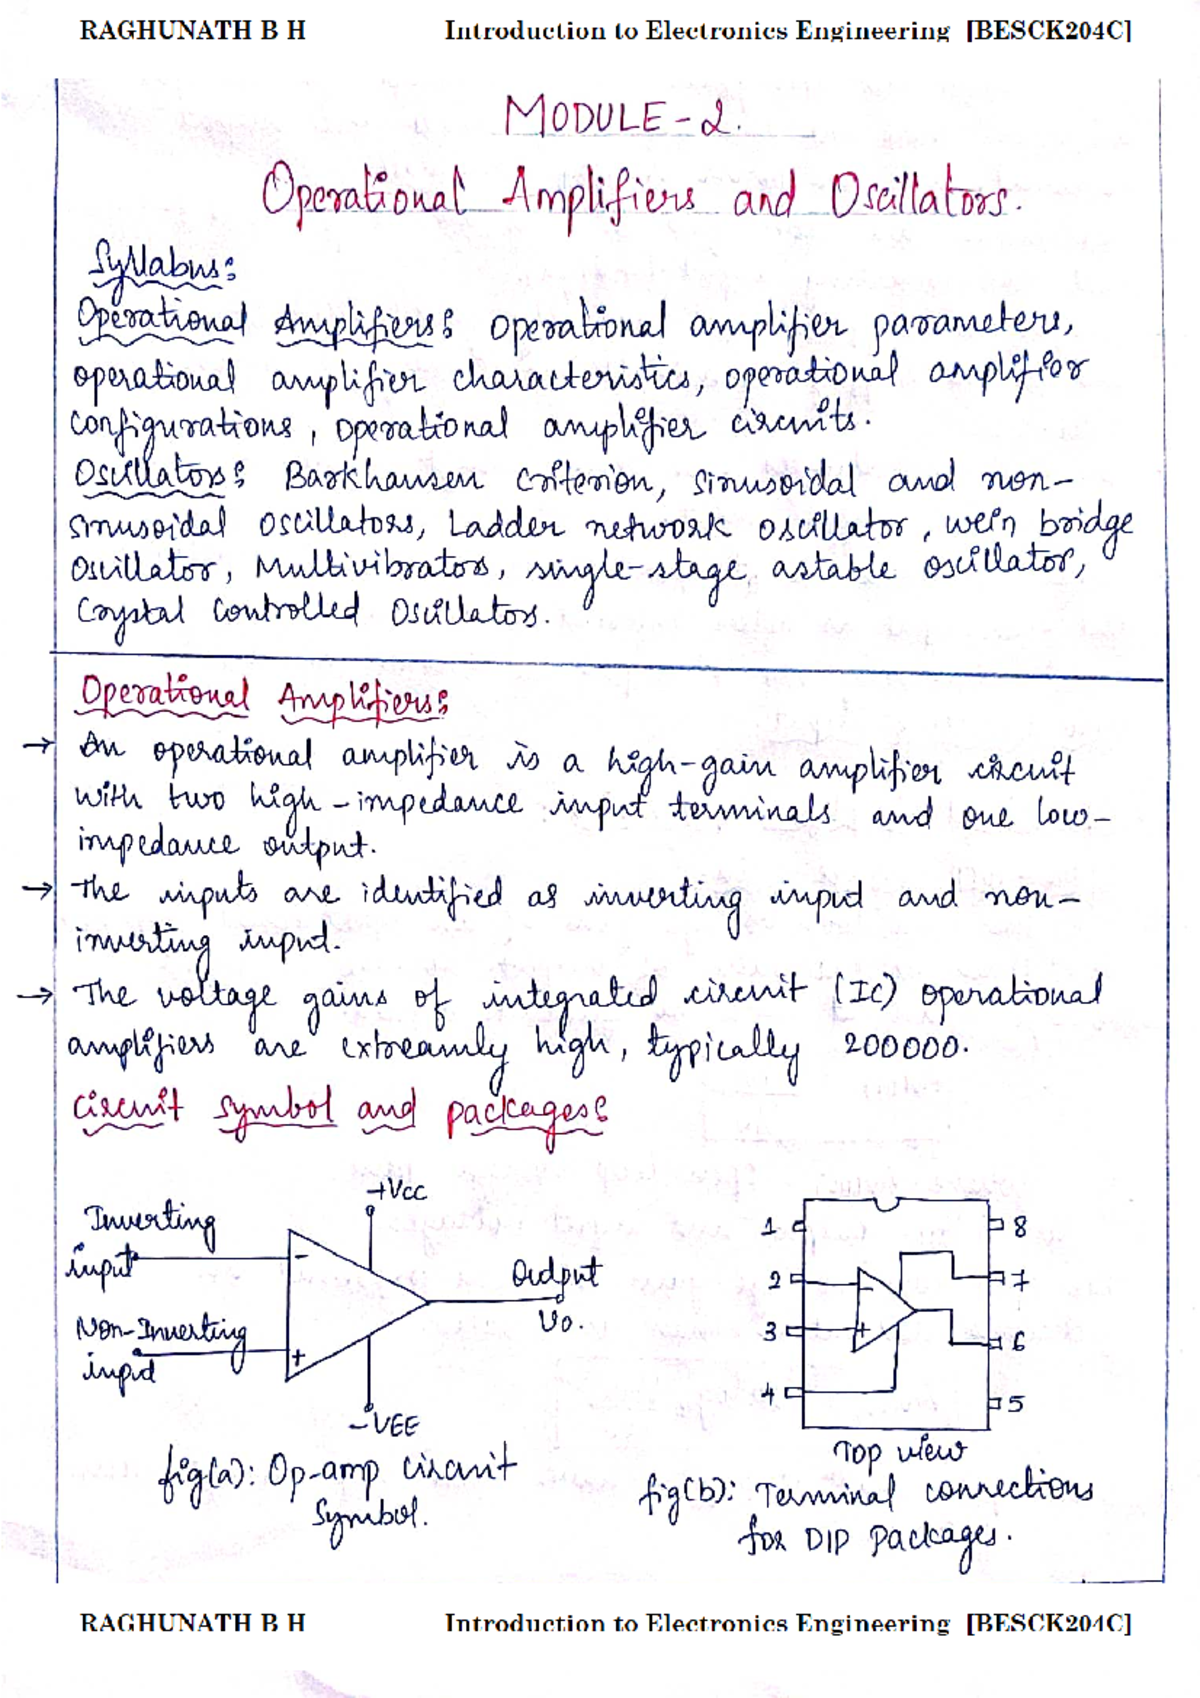 RAGHUNATH B H Introduction to Electronics Engineering [BESCK204C]
MODULE-2.
Operational Amplifiers and Oscillators.
Syllabus:
Operational Amplifiers: operational amplifier parameters,
operational amplifier characteristics, operational amplifier
configurations, operational amplifier circuits.
Oscillators: Barkhausen criterion, sinusoidal and non-
sinusoidal oscillators, Ladder network oscillator, wein bridge
oscillator, Multivibrators, single-stage astable oscillator,
Crystal controlled oscillators.
Operational Amplifiers:
→ An operational amplifier is a high-gain amplifier circuit
with two high-impedance input terminals and one low-
impedance output.
→ The inputs are identified as inverting input and non-
inverting input.
→ The voltage gains of integrated circuit (IC) operational
amplifiers are extreamly high, typically 200000.
circuit symbol and packages:
+Vcc
Inverting
input
-
Output
Vo.
Non-Inverting
input
+
-VEE
fig(a): Op-amp circuit
Symbol.
1
2
3
4
-
+
8
7
6
5
Top view
fig(b): Terminal connections
for DIP packages.
RAGHUNATH B H Introduction to Electronics Engineering [BESCK204C]